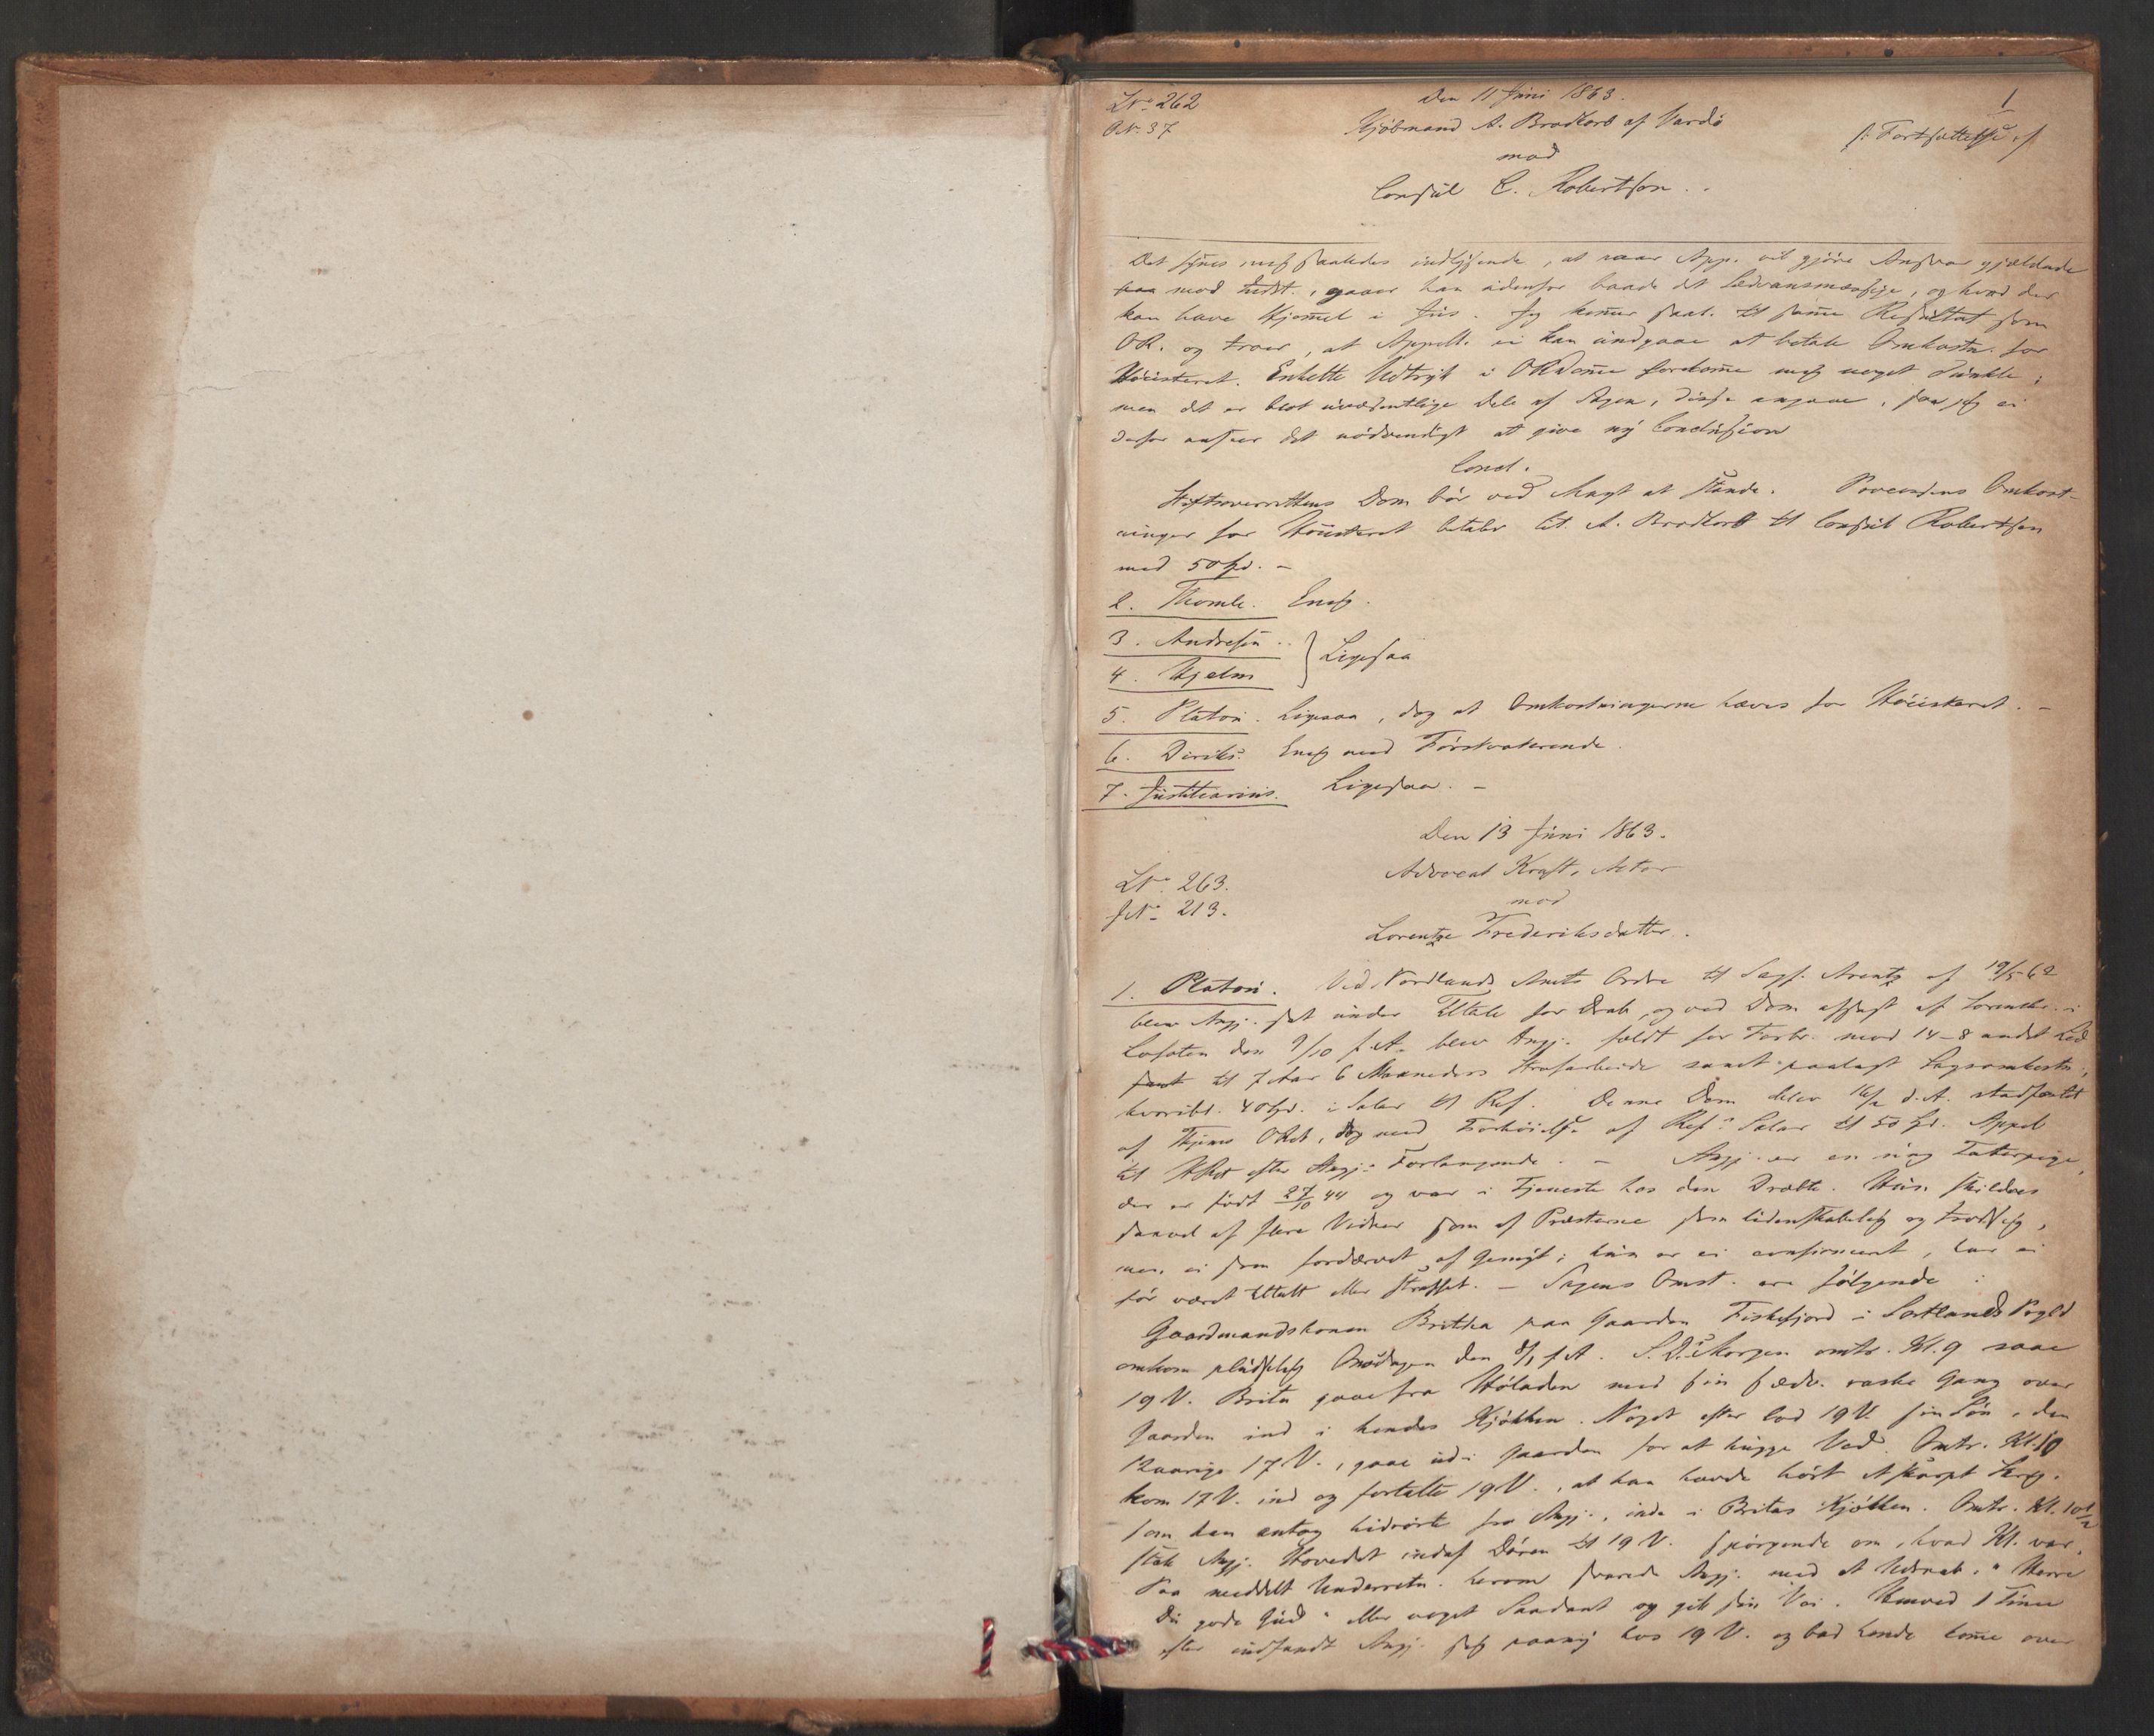 LNo 262
Den 11 Juni 1863.
1
ONo 37
Kjöbmand A. Brodtkorb af Vardö
/: Fortsættelse :/
mod
Consul C. Robertson.
Det synes mig saaledes indlysende, at naar App. vil gjöre Ansvar gjældende
mod Indst., gaaer han udenfor baade det Sædvansmæssige, og hvad der
kan have Hjemmel i Jus. Jeg kommer saal. til samme Resultat som
OR. og troer, at Appell. ei kan undgaae at betale Omkostn. for
Höiesteret. Enkelte Udtryk i ORdomme forekomme mig noget dunkle;
men det er blot uvæsentlige Dele af Sagen, disse angaae, saa jeg ei
derfor anseer det nödvendigt at give ny Conclusion
Concl.
Stiftsoverrettens Dom bör ved Magt at stande. Processens Omkost-
ninger for Höiesteret betaler Cit. A. Brodtkorb til Consul Robertson
med 50 Spd. -
2. Thomle. Enig.
3. Andresen.
4. Hjelm } Ligesaa
5. Platou. Ligesaa, dog at Omkostningerne hæves for Höiesteret. -
6. Diriks. Enig med Förstvoterende.
7. Justitiarius. Ligesaa. -
Den 13 Juni 1863.
LNo 263.
Advocat Kraft, Actor
JNo 213.
mod
Lorentze Frederiksdatter.
1. Platou. Ved Nordlands Amts Ordre til Sagf. Arentz af 19/5 62
blev Angj. sat under Tiltale for Drab, og ved Dom afsagt af Sorenskr. i
Lofoten den 9/10 f. A. blev Angj. fældt for Forbr. mod 14-8 andet Led
til 7 Aar 6 Maaneders Strafarbeide samt paalagt Sagsomkostn.,
hvoribl. 40 Spd. i Salær til Ref. Denne Dom blev 16/2 d. A. stadfæstet
af Thjems ORet, dog med Forhöielse af Ref.s Salær til 50 Spd. Appel
til HRet efter Angj.s Forlangende. - Angj. er en ung Taterpige,
der er födt 27/10 44 og var i Tjeneste hos den Dræbte. Hun skildres
saavel af flere Vidner som af Præsterne som lidenskabelig og trodsig,
men ei som fordærvet af Gemyt; hun er ei confirmeret, har ei
för været tiltalt eller straffet. - Sagens Omst. ere fölgende:
Gaardmandskonen Britha paa Gaarden Fiskefjord i Sortlands Præstegld
omkom pludselig Onsdagen den 8/1 f. A. S. D.s Morgen omtr. Kl. 9 saae
19 V. Brita gaae fra Höladen med sin sædv. raske Gang over
Gaarden ind i hendes Kjökken. Noget efter lod 19 V. sin Sön, den
12aarige 17 V., gaae ud i Gaarden for at hugge Ved. Omtr. Kl. 10
kom 17 V. ind og fortalte 19 V., at han havde hört et skarpt Skrig,
som han antog hidrörte fra Angj., inde i Britas Kjökken. Omtr. Kl. 10 1/2
stak Angj. Hovedet ind af Dören til 19 V. spörgende om, hvad Kl. var.
Paa meddelt Underretn. herom svarede Angj. med et Udraab: "Herre
Du gode Gud" eller noget Saadant og gik sin Vei. Henved 1 Time
efter indfandt Angj. sig paany hos 19 V. og bad hende komme over